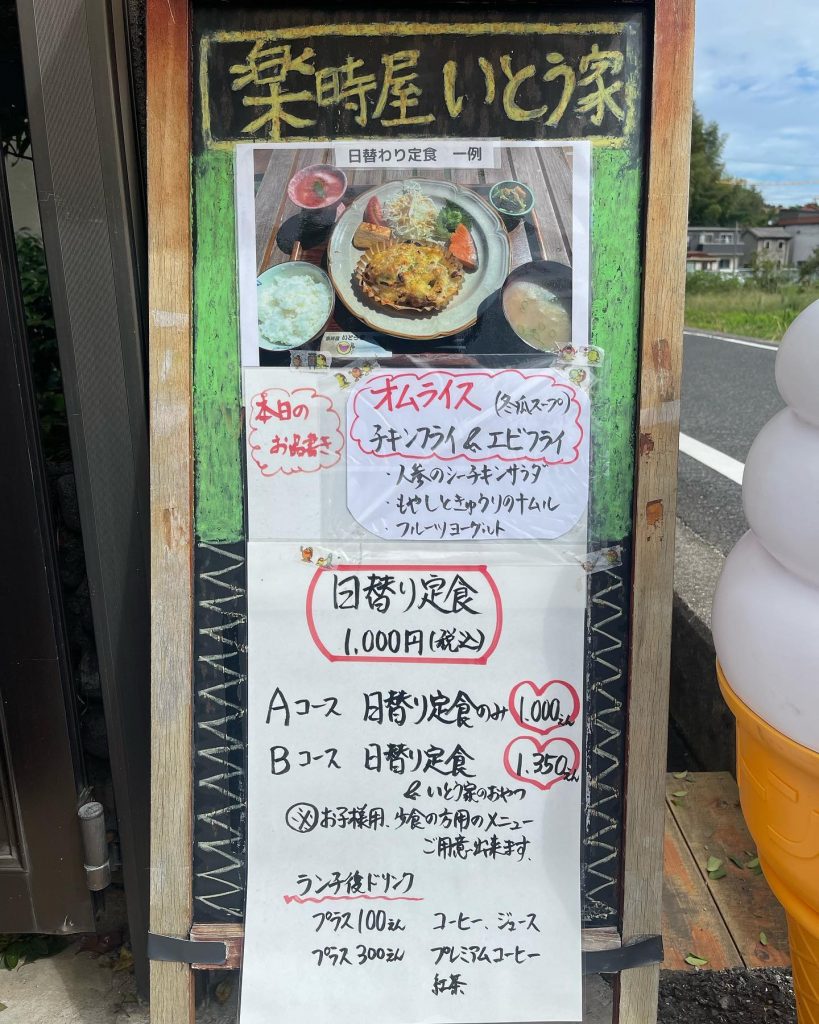 楽時屋 いとう家
日替わり定食 一例
本日の
お品書き
オムライス (冬瓜スープ)
チキンフライ & エビフライ
・人参のシーチキンサラダ
・もやしときゅうりのナムル
・フルーツヨーグルト
日替り定食
1.000円(税込)
Aコース 日替り定食のみ 1.000えん
Bコース 日替り定食 1.350えん
& いとう家のおやつ
※お子様用、少食の方用のメニュー
ご用意出来ます。
ランチ後ドリンク
プラス100えん コーヒー、ジュース
プラス300えん プレミアムコーヒー
紅茶